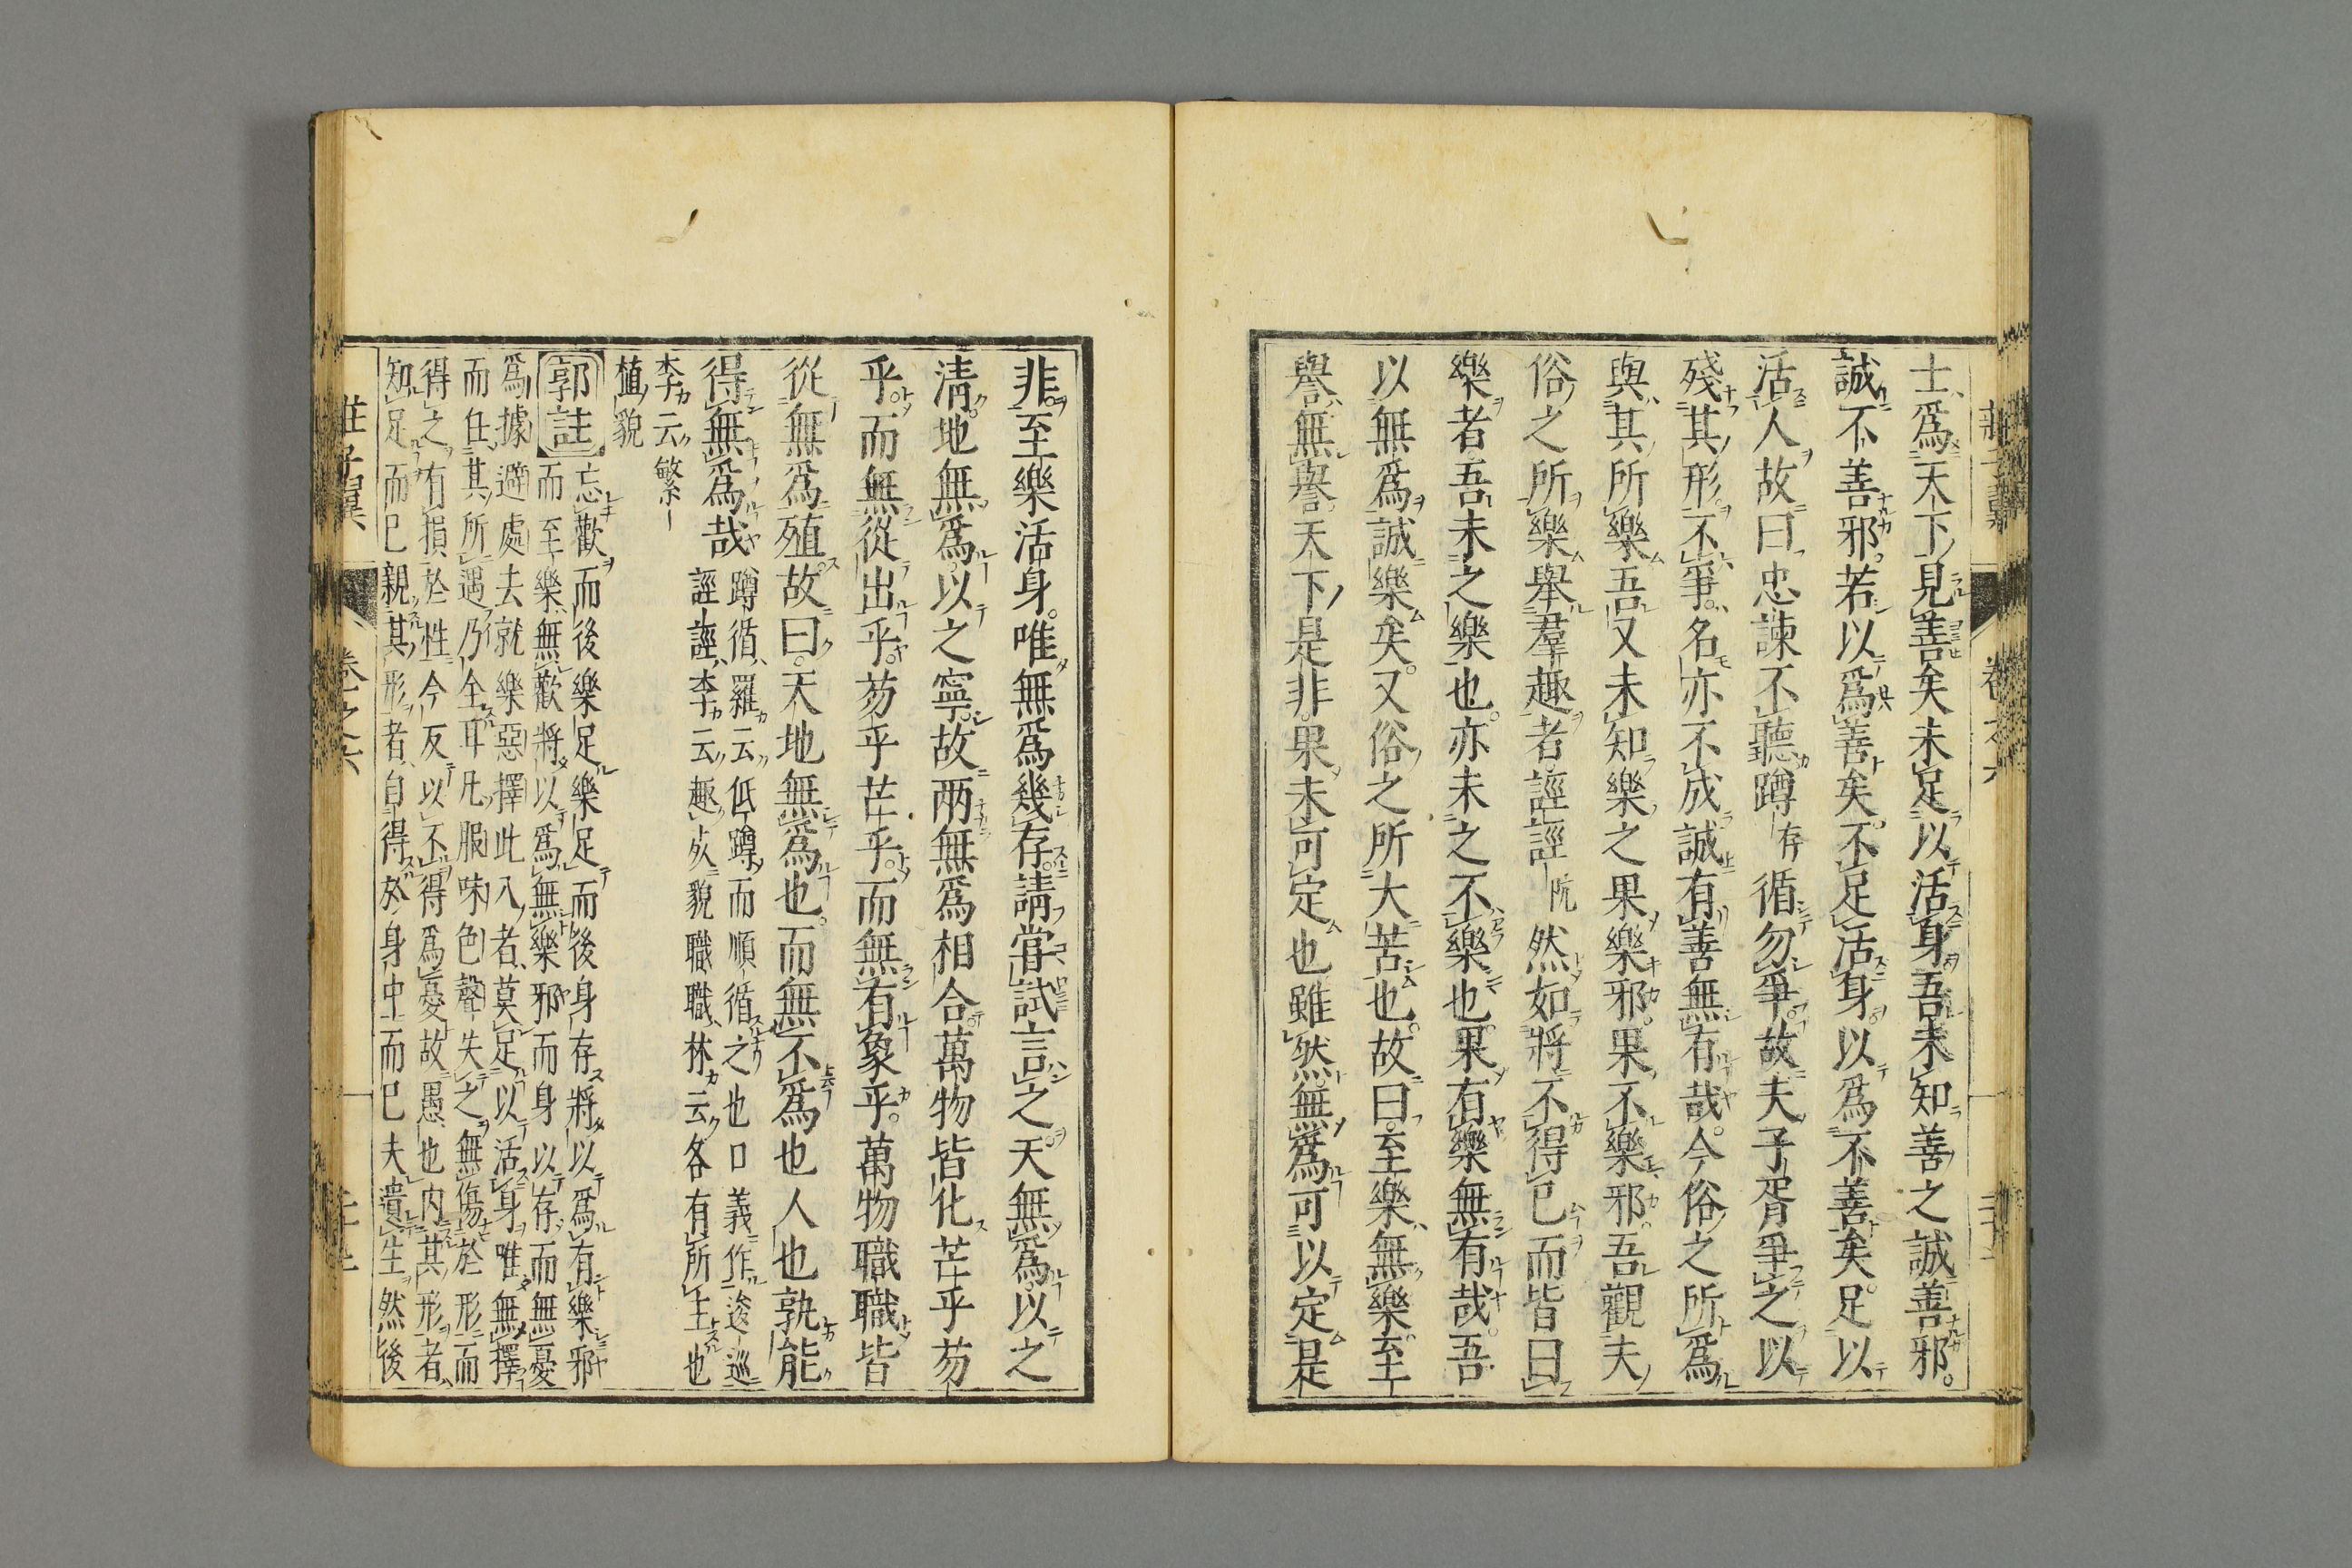 士爲天下見善矣未足以活身吾未知善之誠善邪
誠不善邪若以爲善矣不足活身以爲不善矣足以
活人故曰忠諫不聽蹲存循勿爭故夫子胥爭之以
殘其形不爭名亦不成誠有善無有哉今俗之所爲
與其所樂吾又未知樂之果樂邪果不樂邪吾觀夫
俗之所樂舉羣趣者誙誙阬然如將不得已而皆曰
樂者吾未之樂也亦未之不樂也果有樂無有哉吾
以無爲誠樂矣又俗之所大苦也故曰至樂無樂至
譽無譽天下是非果未可定也雖然無爲可以定是
非至樂活身唯無爲幾存請嘗試言之天無爲以之
淸地無爲以之寧故两無爲相合萬物皆化芒乎芴
乎而無從出乎芴乎芒乎而無有象乎萬物職職皆
從無爲殖故曰天地無爲也而無不爲也人也孰能
得無爲哉
蹲循羅云低蹲而順循之也口義作逡巡
誙誙李云趣死貌職職林云各有所主也
李云繁
植貌
郭註
忘歡而後樂足樂足而後身存將以爲有樂邪
而至樂無歡將以爲無樂邪而身以存而無憂
爲據避處去就樂惡擇此八者莫足以活身唯無擇
而任其所遇乃全耳凡服味色聲失之無傷於形而
得之有損於性今反以不得爲憂故愚也内其形者
知足而已親其形者自得於身中而已夫遺生然後
莊子翼 卷之六